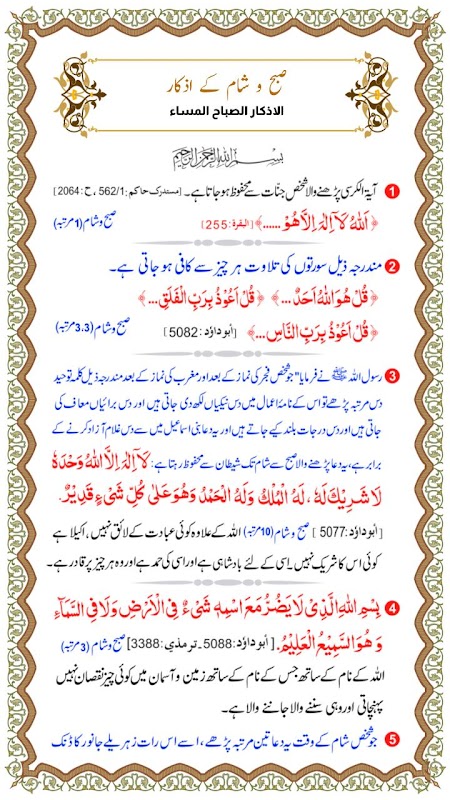 صبح و شام کے اذکار
الاذكار الصباح المساء
بسم اللہ الرحمن الرحیم
1 آیۃ الکرسی پڑھنے والا شخص جنّات سے محفوظ ہو جاتا ہے۔ [مستدرک حاکم: 562/1، ح: 2064]
﴿ اَللّٰهُ لَآ اِلٰهَ اِلَّا هُوَ ......﴾ [البقرۃ: 255] صبح و شام (1 مرتبہ)
2 مندرجہ ذیل سورتوں کی تلاوت ہر چیز سے کافی ہو جاتی ہے۔
﴿ قُلْ هُوَ اللّٰهُ اَحَدٌ ...﴾ ﴿ قُلْ اَعُوْذُ بِرَبِّ الْفَلَقِ...﴾
﴿ قُلْ اَعُوْذُ بِرَبِّ النَّاسِ...﴾ [ابوداؤد: 5082] صبح و شام (3.3 مرتبہ)
3 رسول اللہ ﷺ نے فرمایا" جو شخص فجر کی نماز کے بعد اور مغرب کی نماز کے بعد مندرجہ ذیل کلمہ توحید
دس مرتبہ پڑھے تو اس کے نامۂ اعمال میں دس نیکیاں لکھ دی جاتی ہیں اور دس برائیاں معاف کی
جاتی ہیں اور دس درجات بلند کیے جاتے ہیں اور یہ دعا بنی اسماعیل میں سے دس غلام آزاد کرنے کے
برابر ہے، یہ دعا پڑھنے والا صبح سے شام تک شیطان سے محفوظ رہتا ہے: لَآ اِلٰهَ اِلَّا اللّٰهُ وَحْدَهٗ
لَا شَرِيْكَ لَهٗ، لَهُ الْمُلْكُ وَلَهُ الْحَمْدُ وَهُوَ عَلٰى كُلِّ شَىْءٍ قَدِيْرٌ.
[ابوداؤد: 5077] صبح و شام (10 مرتبہ) اللہ کے علاوہ کوئی عبادت کے لائق نہیں، اکیلا ہے
کوئی اس کا شریک نہیں۔ اسی کے لئے بادشاہی ہے اور اسی کی حمد ہے اور وہ ہر چیز پر قادر ہے۔
4 بِسْمِ اللّٰهِ الَّذِىْ لَا يَضُرُّ مَعَ اسْمِهٖ شَىْءٌ فِى الْاَرْضِ وَلَا فِى السَّمَآءِ
وَهُوَ السَّمِيْعُ الْعَلِيْمُ. [ابوداؤد: 5088۔ ترمذی: 3388] صبح و شام (3 مرتبہ)
اللہ کے نام کے ساتھ جس کے نام کے ساتھ زمین و آسمان میں کوئی چیز نقصان نہیں
پہنچاتی اور وہی سننے والا جاننے والا ہے۔
5 جو شخص شام کے وقت یہ دعا تین مرتبہ پڑھے، اسے اس رات زہریلے جانور کا ڈنک